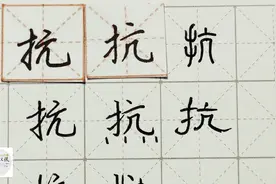 抗 抗 抗
抗 抗 抗